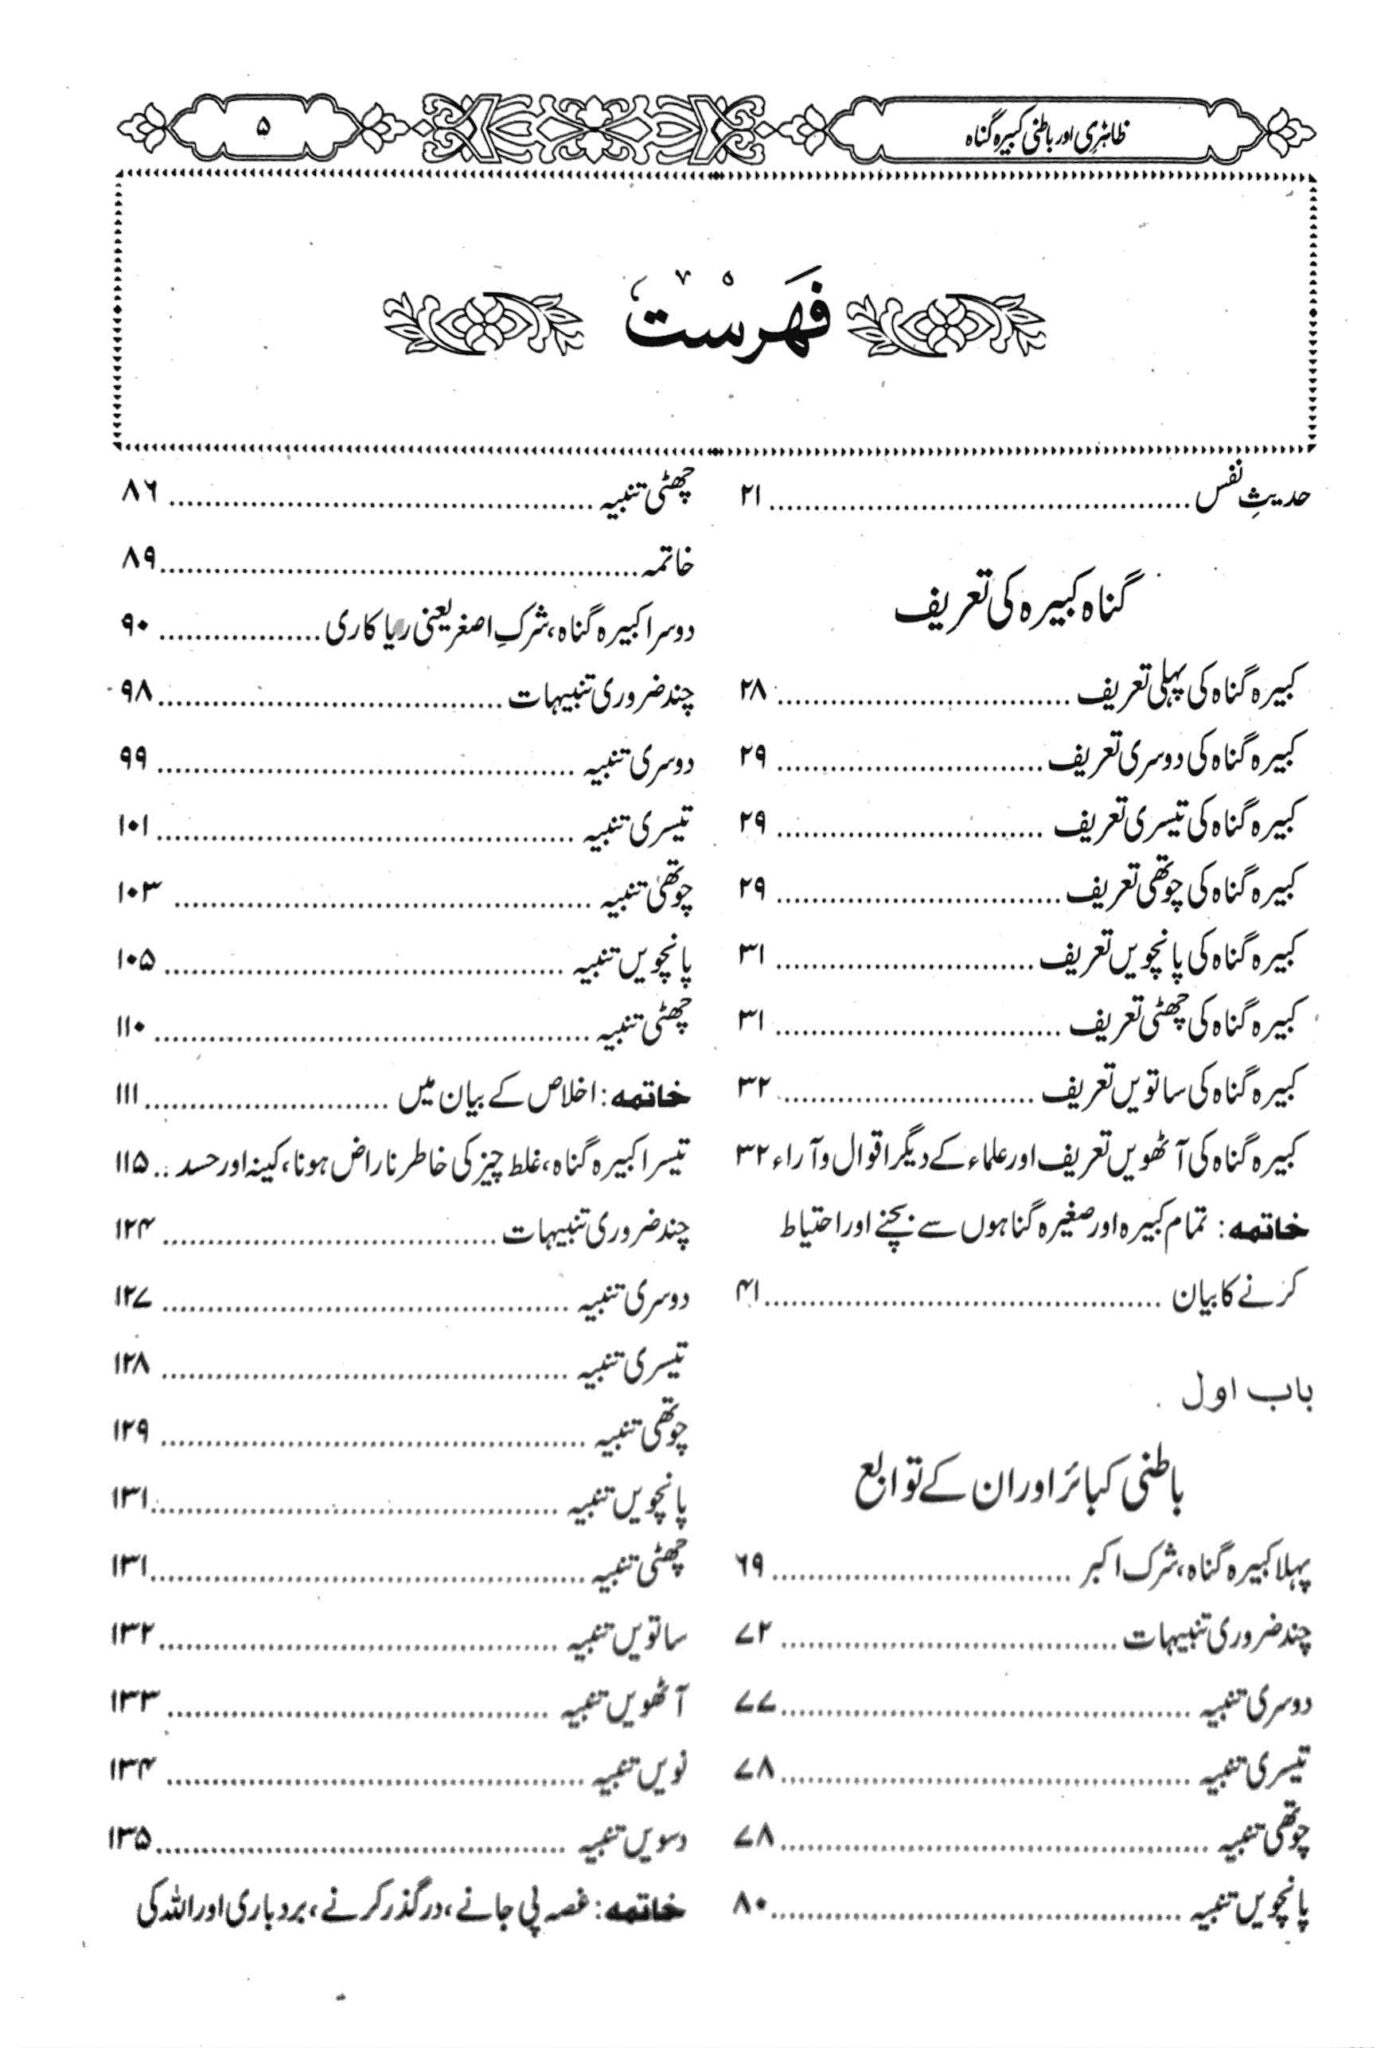 ظاہری اور باطنی کبیرہ گناہ
۵
فَہْرِسْت
حدیثِ نفس ۲۱
گناہ کبیرہ کی تعریف
کبیرہ گناہ کی پہلی تعریف ۲۸
کبیرہ گناہ کی دوسری تعریف ۲۹
کبیرہ گناہ کی تیسری تعریف ۲۹
کبیرہ گناہ کی چوتھی تعریف ۲۹
کبیرہ گناہ کی پانچویں تعریف ۳۱
کبیرہ گناہ کی چھٹی تعریف ۳۱
کبیرہ گناہ کی ساتویں تعریف ۳۲
کبیرہ گناہ کی آٹھویں تعریف اور علماء کے دیگر اقوال و آراء ۳۲
خاتمہ: تمام کبیرہ اور صغیرہ گناہوں سے بچنے اور احتیاط
کرنے کا بیان ۴۱
باب اول
باطنی کبائر اور ان کے توابع
پہلا کبیرہ گناہ، شرک اکبر ۶۹
چند ضروری تنبیہات ۷۲
دوسری تنبیہ ۷۷
تیسری تنبیہ ۷۸
چوتھی تنبیہ ۷۸
پانچویں تنبیہ ۸۰
چھٹی تنبیہ ۸۶
خاتمہ ۸۹
دوسرا کبیرہ گناہ، شرکِ اصغر یعنی ریاکاری ۹۰
چند ضروری تنبیہات ۹۸
دوسری تنبیہ ۹۹
تیسری تنبیہ ۱۰۱
چوتھی تنبیہ ۱۰۳
پانچویں تنبیہ ۱۰۵
چھٹی تنبیہ ۱۱۰
خاتمہ: اخلاص کے بیان میں ۱۱۱
تیسرا کبیرہ گناہ، غلط چیز کی خاطر ناراض ہونا، کینہ اور حسد ۱۱۵
چند ضروری تنبیہات ۱۲۴
دوسری تنبیہ ۱۲۷
تیسری تنبیہ ۱۲۸
چوتھی تنبیہ ۱۲۹
پانچویں تنبیہ ۱۳۱
چھٹی تنبیہ ۱۳۱
ساتویں تنبیہ ۱۳۲
آٹھویں تنبیہ ۱۳۳
نویں تنبیہ ۱۳۴
دسویں تنبیہ ۱۳۵
خاتمہ: غصہ پی جانے، درگذر کرنے، بردباری اور اللہ کی